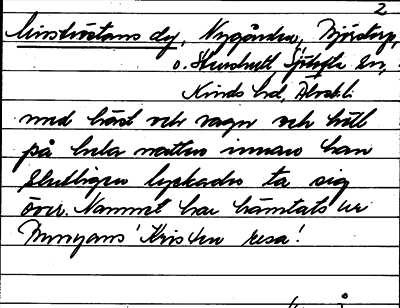 2
Linströstans dy, Nygården, Björstorp,
o. Skushult Sjötofta sn,
Kinds hd, Älvsb.l.
med häst och vagn och höll
på hela natten innan han
slutligen lyckades ta sig
över. Namnet har hämtats ur
Bunyans' Kristen resa!